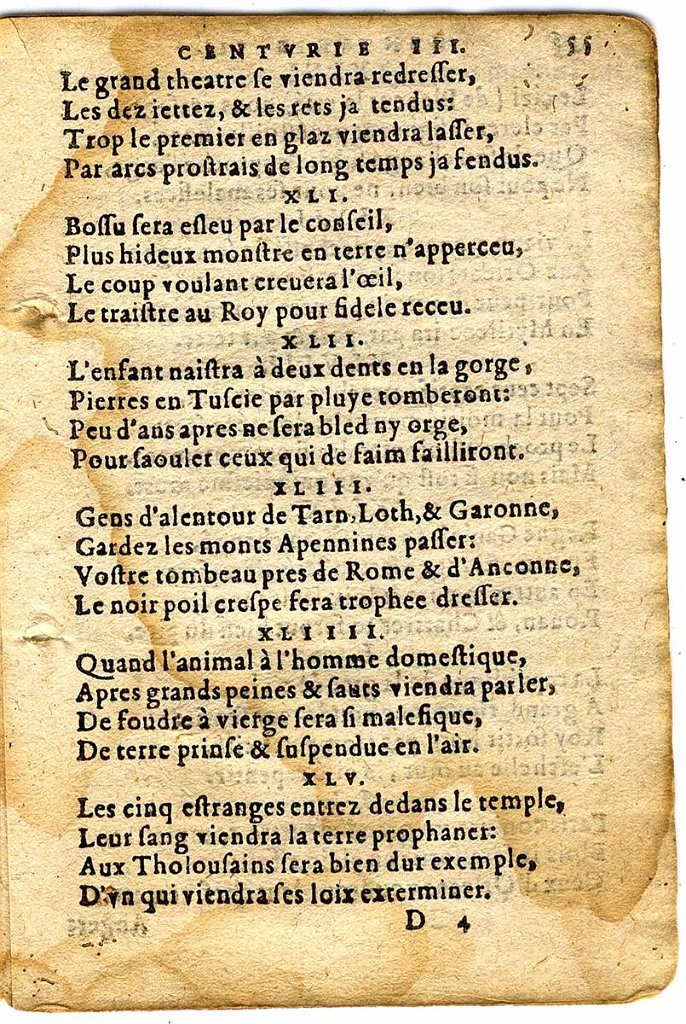 CENTVRIE III. 55
Le grand theatre ſe viendra redreſſer,
Les dez iettez, & les rets ja tendus:
Trop le premier en glaz viendra laſſer,
Par arcs proſtrais de long temps ja fendus.
XLI.
Boſſu ſera eſleu par le conſeil,
Plus hideux monſtre en terre n'apperceu,
Le coup voulant creuera l'œil,
Le traiſtre au Roy pour fidele receu.
XLII.
L'enfant naiſtra à deux dents en la gorge,
Pierres en Tuſcie par pluye tomberont:
Peu d'ans apres ne ſera bled ny orge,
Pour ſaouler ceux qui de faim failliront.
XLIII.
Gens d'alentour de Tarn, Loth, & Garonne,
Gardez les monts Apennines paſſer:
Voſtre tombeau pres de Rome & d'Anconne,
Le noir poil creſpe fera trophee dreſſer.
XLIIII.
Quand l'animal à l'homme domeſtique,
Apres grands peines & ſauts viendra parler,
De foudre à vierge ſera ſi malefique,
De terre prinſe & ſuſpendue en l'air.
XLV.
Les cinq eſtranges entrez dedans le temple,
Leur ſang viendra la terre prophaner:
Aux Tholouſains ſera bien dur exemple,
D'vn qui viendra ſes loix exterminer.
D 4